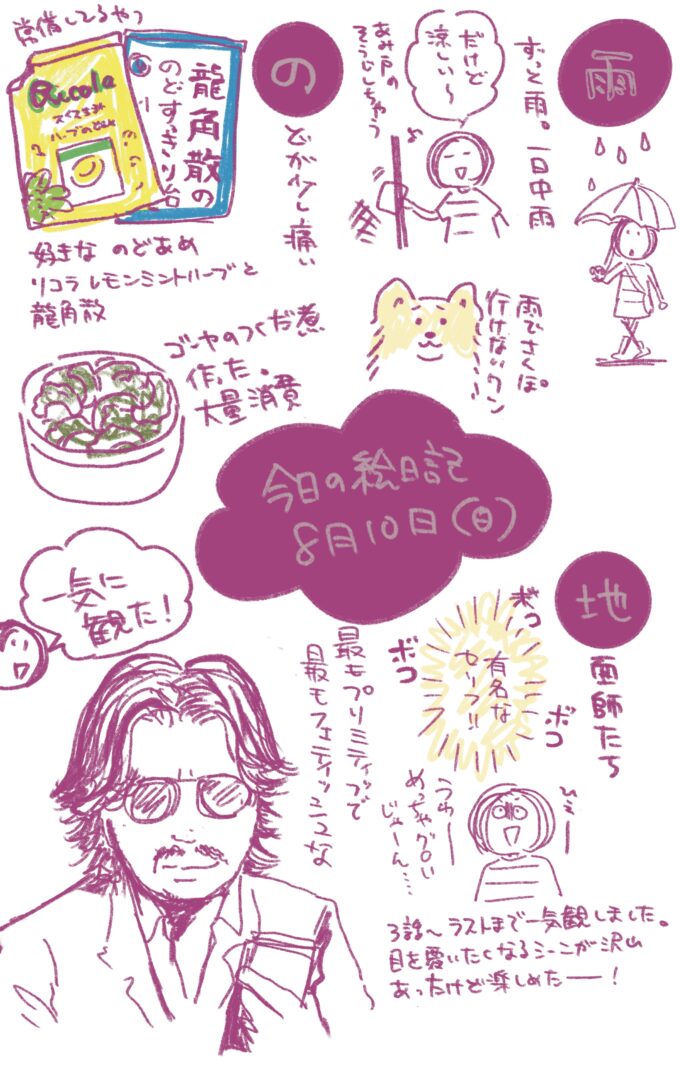 雨
ずっと雨。一日中雨
だけど
涼しい〜
あみ戸の
そうじしちゃうよ
雨でさくぽ。
行けないワン
の
どが少し痛い
常備してるやつ
Ricola
スイス生まれ
ハーブのどあめ
龍角散の
のどすっきり飴
好きな のどあめ
リコラ レモンミントハーブと
龍角散
ゴーヤのつくだ煮
作った。
大量消費
今日の絵日記
8月10日(日)
地
面師たち
ボコ
ボコ
ボコ
有名な
セリフ!!
最もプリミティブで
最もフェティッシュな
一気に
観た!
ひぇー
うわー
めっちゃグロい
じゃーん…
3話〜ラストまで一気観しました。
目を覆いたくなるシーンが沢山
あったけど楽しめたー!